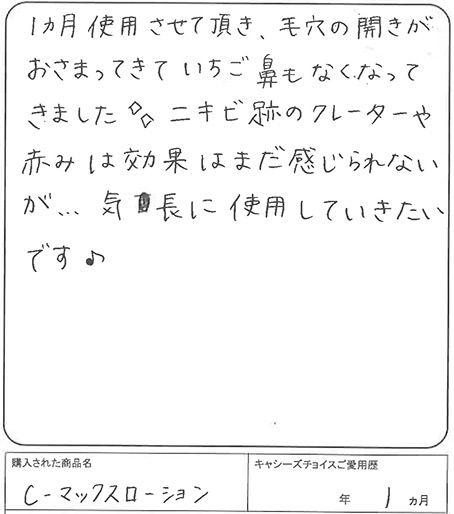 1カ月使用させて頂き、毛穴の開きが
おさまってきていちご鼻もなくなって
きました◇◇ニキビ跡のクレーターや
赤みは効果はまだ感じられない
が…気長に使用していきたい
です♪
購入された商品名
キャシーズチョイスご愛用歴
C-マックスローション
年 1 カ月